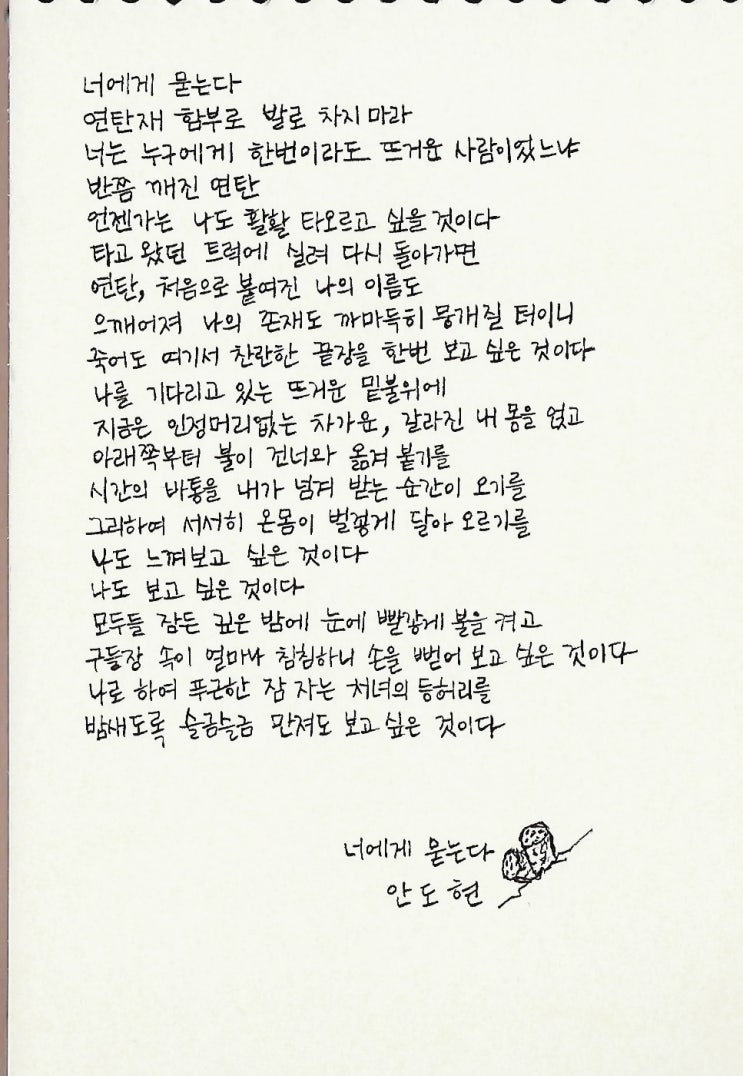 너에게 묻는다
연탄재 함부로 발로 차지 마라
너는 누구에게 한번이라도 뜨거운 사람이었느냐
반쯤 깨진 연탄
언젠가는 나도 활활 타오르고 싶을 것이다
타고 왔던 트럭에 실려 다시 돌아가면
연탄, 처음으로 붙여진 나의 이름도
으깨어져 나의 존재도 까마득히 뭉개질 터이니
죽어도 여기서 찬란한 끝장을 한번 보고 싶은 것이다
나를 기다리고 있는 뜨거운 밑불위에
지금은 인정머리없는 차가운, 갈라진 내 몸을 얹고
아래쪽부터 불이 건너와 옮겨 붙기를
시간의 바통을 내가 넘겨 받는 순간이 오기를
그리하여 서서히 온몸이 벌겋게 달아 오르기를
나도 느껴보고 싶은 것이다
나도 보고 싶은 것이다
모두들 잠든 깊은 밤에 눈에 빨갛게 불을 켜고
구들장 속이 얼마나 침침하니 손을 뻗어 보고 싶은 것이다
나로 하여 푸근한 잠 자는 처녀의 등허리를
밤새도록 슬금슬금 만져도 보고 싶은 것이다
너에게 묻는다
안도현